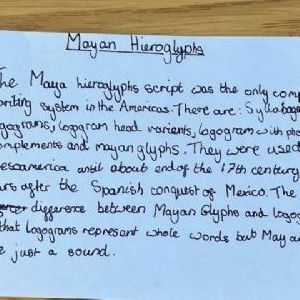 Mayan Hieroglyphs
The Maya hieroglyphs script was the only comp
writing system in the Americas. There are: Syllabog
logograms, logogram head varients, logogram with pho
complements and mayan glyphs. They were used
esoamerica until about end of the 17th century
urs after the Spanish conquest of Mexico. The
difference between Mayan Glyphs and logog
that logograms represent whole words but Mayan
e just a sound.